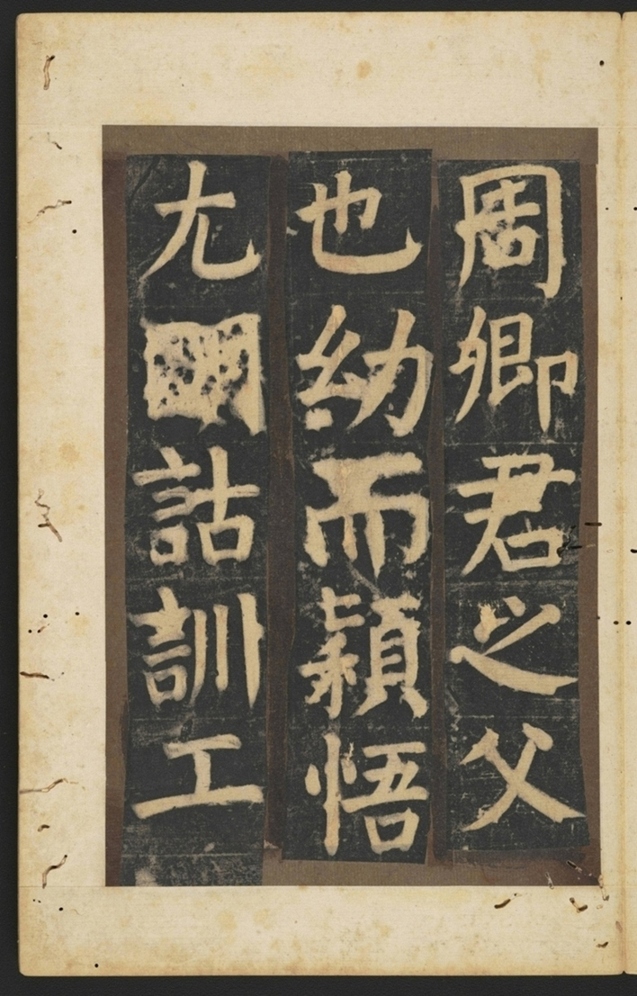 周卿君之父
也幼而穎悟
尤詁訓工